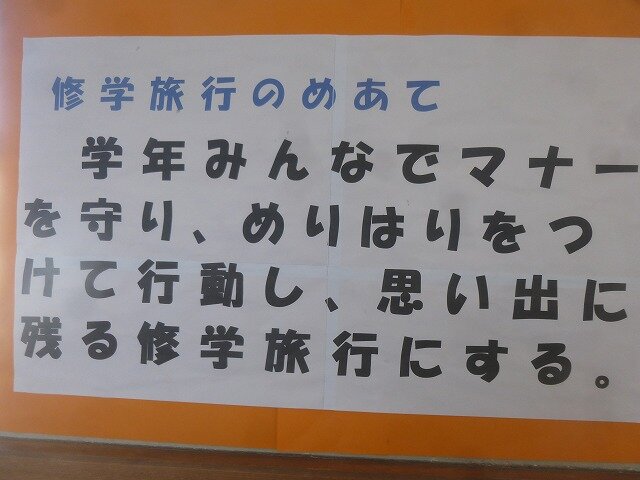 修学旅行のめあて
学年みんなでマナー
を守り、めりはりをつ
けて行動し、思い出に
残る修学旅行にする。